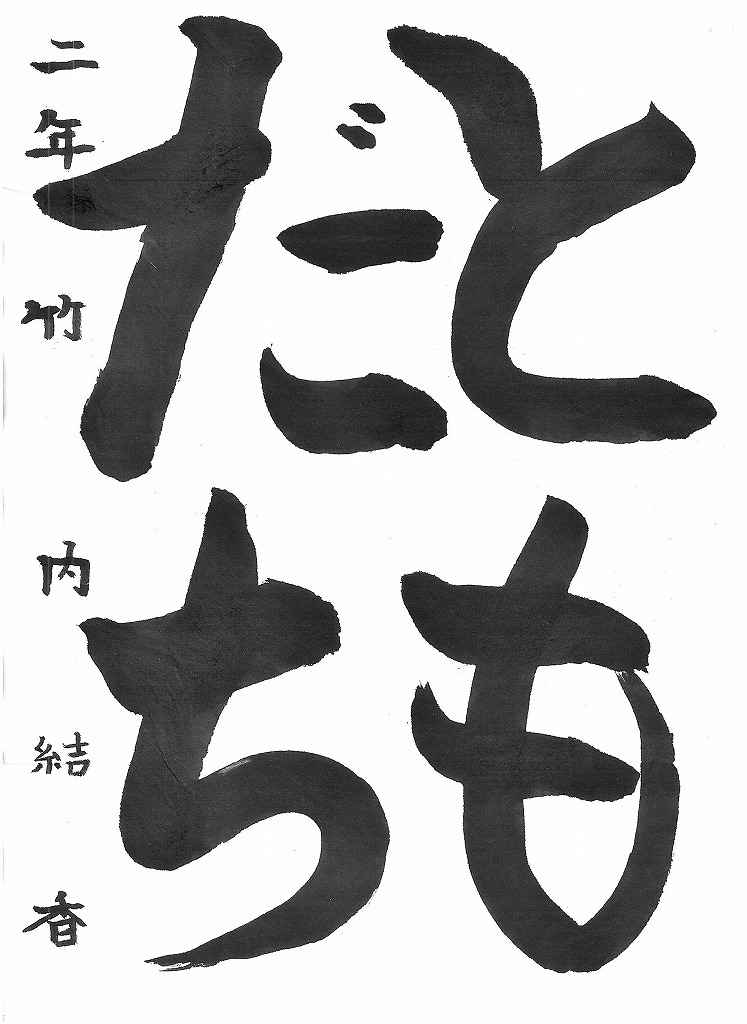 とも
だち
二年 竹内結香